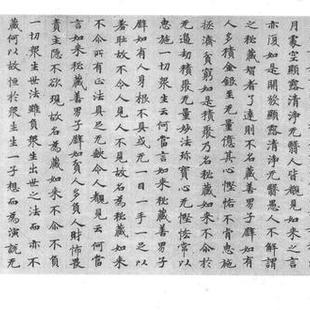 月處空顯露清淨无翳人皆覩見如来之言
亦復如是開發顯露清淨无翳愚人不解謂
之秘藏智者了達則不名藏善男子辟如有
人多積金銀至无量億其心慳悋不肯惠施
拯濟貧窮如是積聚乃名秘藏如来不尒於
无邊劫積聚无量妙法珎寶心无慳悋常以
惠施一切衆生云何當言如来秘藏善男子
辟如有人身根不具或无一目一手一足以
羞耻故不令人見人不見故名為秘藏如来
不尒所有正法具足无缺令人覩見云何當
言如来秘藏善男子辟如貧人多負人財怖畏
責主隱不欲現故名為藏如来不尒不負
一切衆生世法雖負衆生出世之法而亦不
藏何以故恒於衆生生一子想而為演說无